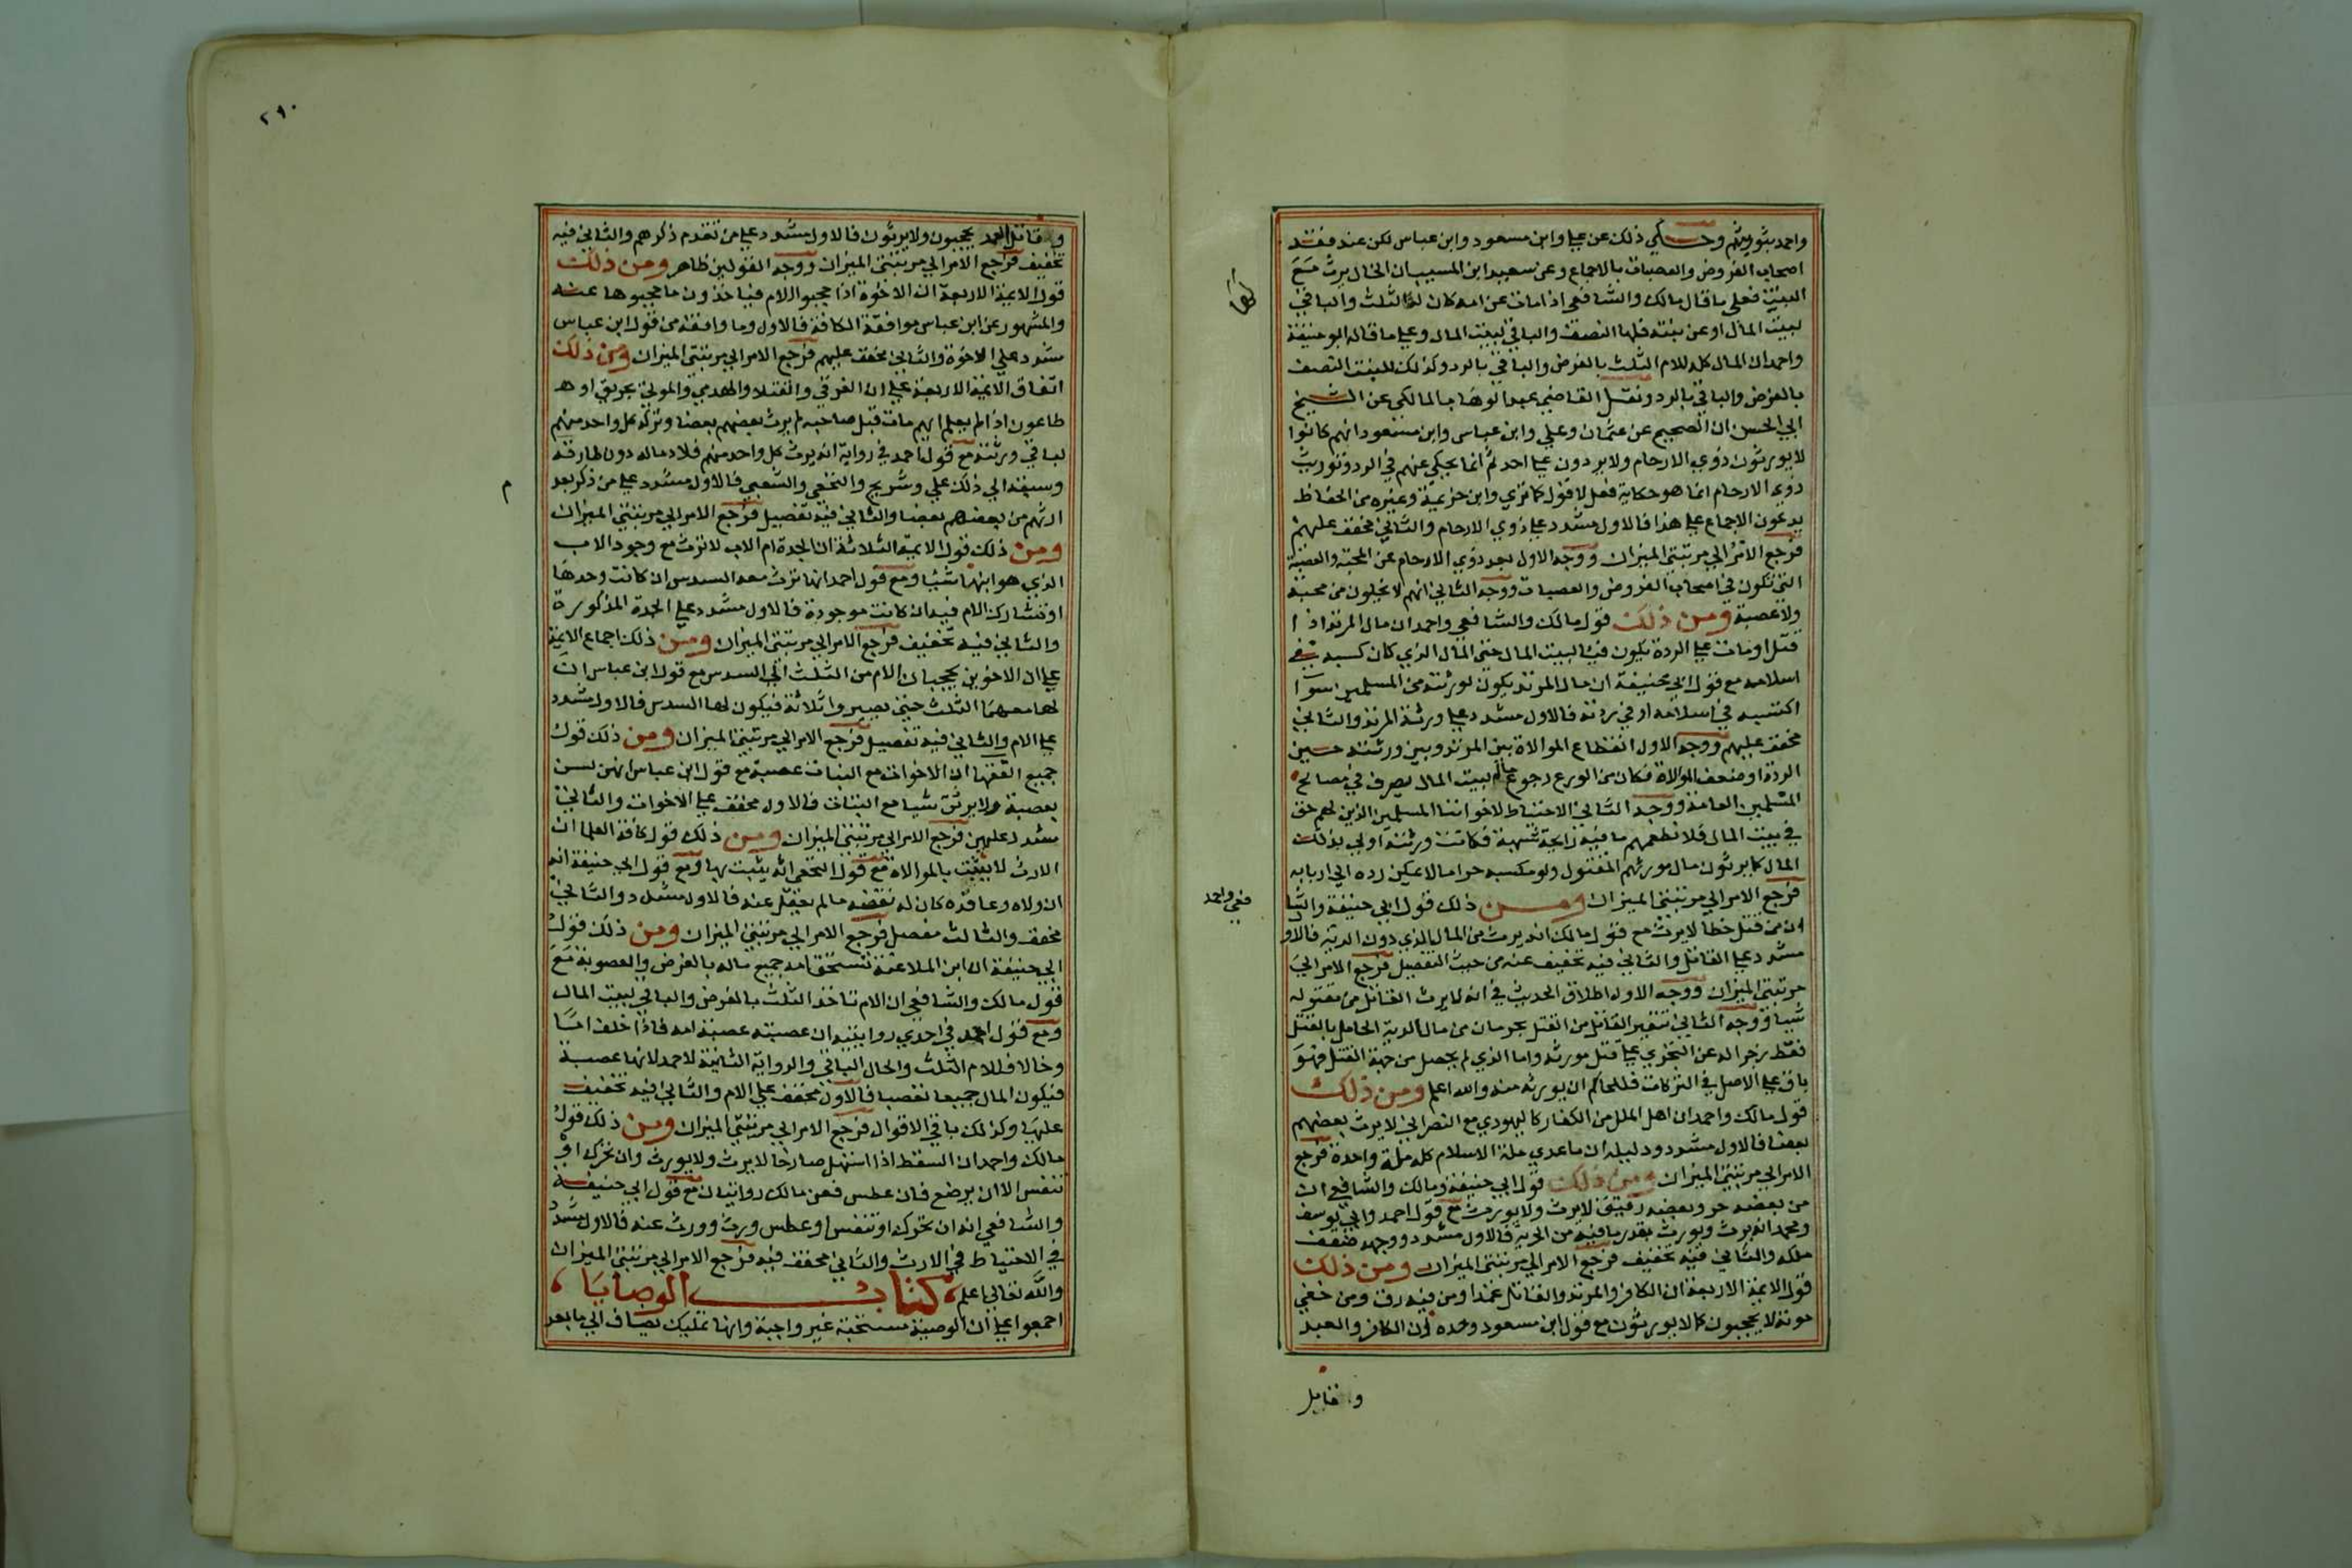 واحمد بتوريثهم وحكي ذلك عن علي وابن مسعود وابن عباس لكن عند فقد
اصحاب الفروض والعصبات بالاجماع وعن سعيد ابن المسيب ان الخال يرث مع
البنت فعلى ما قال مالك والشافعي اذا مات عن امه كان لها الثلث والباقي
لبيت المال او عن بنته فلها النصف والباقي لبيت المال وعلي ما قاله ابو حنيفة
واحمد ان المال كله للام الثلث بالفرض والباقي بالرد وكذلك للبنت النصف
بالفرض والباقي بالرد ونقل القاضي عبد الوهاب المالكي عن الشيخ
ابي الحسن ان الصحيح عن عثمان وعلي وابن عباس وابن مسعود انهم كانوا
لا يورثون ذوي الارحام ولا يردون علي احد ثم انما يحكي عنهم في الرد وتوريث
ذوي الارحام انما هو حكاية فعل لا قول كانزي وابن خزيمة وغيره من الحفاظ
يدعون الاجماع علي هذا فالاول مشدد علي ذوي الارحام والثاني مخفف عليهم
فرجع الامر الي مرتبتي الميزان ووجه الاول بعد ذوي الارحام عن المحبة والعصبة
التي تكون في اصحاب الفروض والعصبات ووجه الثاني انهم لا يخلون من محبة
ولا عصبة ومن ذلك قول مالك والشافعي واحمد ان مال المرتد اذا
قتل او مات علي الردة يكون فيئا لبيت المال حتى المال الذي كان كسبه في
اسلامه مع قول ابي حنيفة ان مال المرتد يكون لورثته من المسلمين سواء
اكتسبه في اسلامه او في ردته فالاول مشدد علي ورثة المرتد والثاني
مخفف عليهم ووجه الاول انقطاع الموالاة بين المرتد وبين ورثته حين
الردة او ضعف الموالاة فكان من الورع رجوع ماله لبيت المال يصرف في مصالح
المسلمين العامة ووجه الثاني الاحتياط لاخواننا المسلمين الذين لهم حق
في بيت المال فلا نطعمهم ما فيه رايحة شبهة فكانت ورثته اولي بذلك
المال كما يرثون مال مورثهم المقتول ولو مكسبه حراما لا يمكن رده الي اربابه
فرجع الامر الي مرتبتي الميزان ومن ذلك قول ابي حنيفة والشا
فعي واحمد
ان من قتل خطا لا يرث مع قول مالك انه يرث من المال الذي دون الدية فالاو
مشدد علي القاتل والثاني فيه تخفيف عنه من حيث التفصيل فرجع الامر الي
مرتبتي الميزان ووجه الاول اطلاق الحديث في انه لا يرث القاتل من مقتوله
شيا ووجه الثاني تنفير القاتل من القتل بحرمان من مال الدية الحاصل بالقتل
فقط زجرا له عن التجري علي قتل مورثه واما الذي لم يحصل من جهة القتل فهو
باق علي الاصل في التركات فللحاكم ان يورثه منه والله اعلم ومن ذلك
قول مالك واحمد ان اهل الملل من الكفار كاليهودي مع النصراني لا يرث بعضهم
بعضا فالاول مشدد ودليله ان ما عدي ملة الاسلام كله ملة واحدة فرجع
الامر الي مرتبتي الميزان ومن ذلك قول ابي حنيفة ومالك والشافعي ان
من بعضه حر وبعضه رقيق لا يرث ولا يورث مع قول احمد وابي يوسف
ومحمد انه يرث ويورث بقدر ما فيه من الحرية فالاول مشدد ووجهه ضعف
ملكه والثاني فيه تخفيف فرجع الامر الي مرتبتي الميزان ومن ذلك
قول الايمة الاربعة ان الكافر والمرتد والقاتل عمدا ومن فيه رق ومن خفي
موته لا يحجبون كما لا يورثون مع قول ابن مسعود وحده ان الكافر والعبد
وقاتل
٢٩٠
وقاتل العمد يحجبون ولا يرثون فالاول مشدد علي من تقدم ذكرهم والثاني فيه
تخفيف فرجع الامر الي مرتبتي الميزان ووجه القولين ظاهر ومن ذلك
قول الايمة الاربعة ان الاخوة اذا حجبوا الام فياخذون ما حجبوها عنه
والمشهور عن ابن عباس موافقة الكافة فالاول وما وافقه من قول ابن عباس
مشدد علي الاخوة والثاني مخفف عليهم فرجع الامر الي مرتبتي الميزان ومن ذلك
اتفاق الايمة الاربعة علي ان الغرقي والقتلا والهدمي والموتي بحريق او
طاعون اذا لم يعلم ايهم مات قبل صاحبه لم يرث بعضهم بعضا وتركة كل واحد منهم
لباقي ورثته مع قول احمد في رواية انه يرث كل واحد منهم تلاد ماله دون طارفه
وسبقه الي ذلك علي وشريح والنخعي والشعبي فالاول مشدد علي من ذكر بعد
م
ارثهم من بعضهم بعضا والثاني فيه تفصيل فرجع الامر الي مرتبتي الميزان
ومن ذلك قول الايمة الثلاثة ان الجدة ام الاب لا ترث مع وجود الاب
الذي هو ابنها شيا ومع قول احمد انها ترث معه السدس ان كانت وحدها
او تشارك الام فيه ان كانت موجودة فالاول مشدد علي الجدة المذكورة
والثاني فيه تخفيف فرجع الامر الي مرتبتي الميزان ومن ذلك اجماع الايمة
علي ان الاخوين يحجبان الام من الثلث الي السدس مع قول ابن عباس ان
لها معهما الثلث حتي يصيروا ثلاثة فيكون لها السدس فالاول مشدد
علي الام والثاني فيه تفصيل فرجع الامر الي مرتبتي الميزان ومن ذلك قول
جميع الفقها ان الاخوات مع البنات عصبة مع قول ابن عباس انهن لسن
بعصبة ولا يرثن شيا مع البنات فالاول مخفف علي الاخوات والثاني
مشدد عليهن فرجع الامر الي مرتبتي الميزان ومن ذلك قول كافة العلما ان
الارث لا يثبت بالموالاة مع قول النخعي انه يثبت بها ومع قول ابي حنيفة انه
ان ولاه وعاقده كان له نقضه ما لم يعقل عنه فالاول مشدد والثاني
مخفف والثالث مفصل فرجع الامر الي مرتبتي الميزان ومن ذلك قول
ابي حنيفة ان ابن الملاعنة تستحق امه جميع ماله بالفرض والعصوبة مع
قول مالك والشافعي ان الام تاخذ الثلث بالفرض والباقي لبيت المال
ومع قول احمد في احدي روايتيه ان عصبته عصبة امه فاذا خلف اما
وخالا فللام الثلث والخال الباقي والرواية الثانية لاحمد لانها عصبة
فيكون المال جميعا تعصبا فالاول مخفف علي الام والثاني فيه تخفيف
عليها وكذلك باقي الاقوال فرجع الامر الي مرتبتي الميزان ومن ذلك قول
مالك واحمد ان السقط اذا استهل صارخا لا يرث ولا يورث وان تحرك او
تنفس الا ان يرضع فان عطس فعن مالك روايتان مع قول ابي حنيفة
والشافعي انه ان تحرك او تنفس او عطس ورث وورث عنه فالاول مشدد
في الاحتياط في الارث والثاني مخفف فيه فرجع الامر الي مرتبتي الميزان
والله تعالى اعلم كتاب الوصايا
اجمعوا علي ان الوصية مستحبة غير واجبة وانها تمليك يضاف الي ما بعد